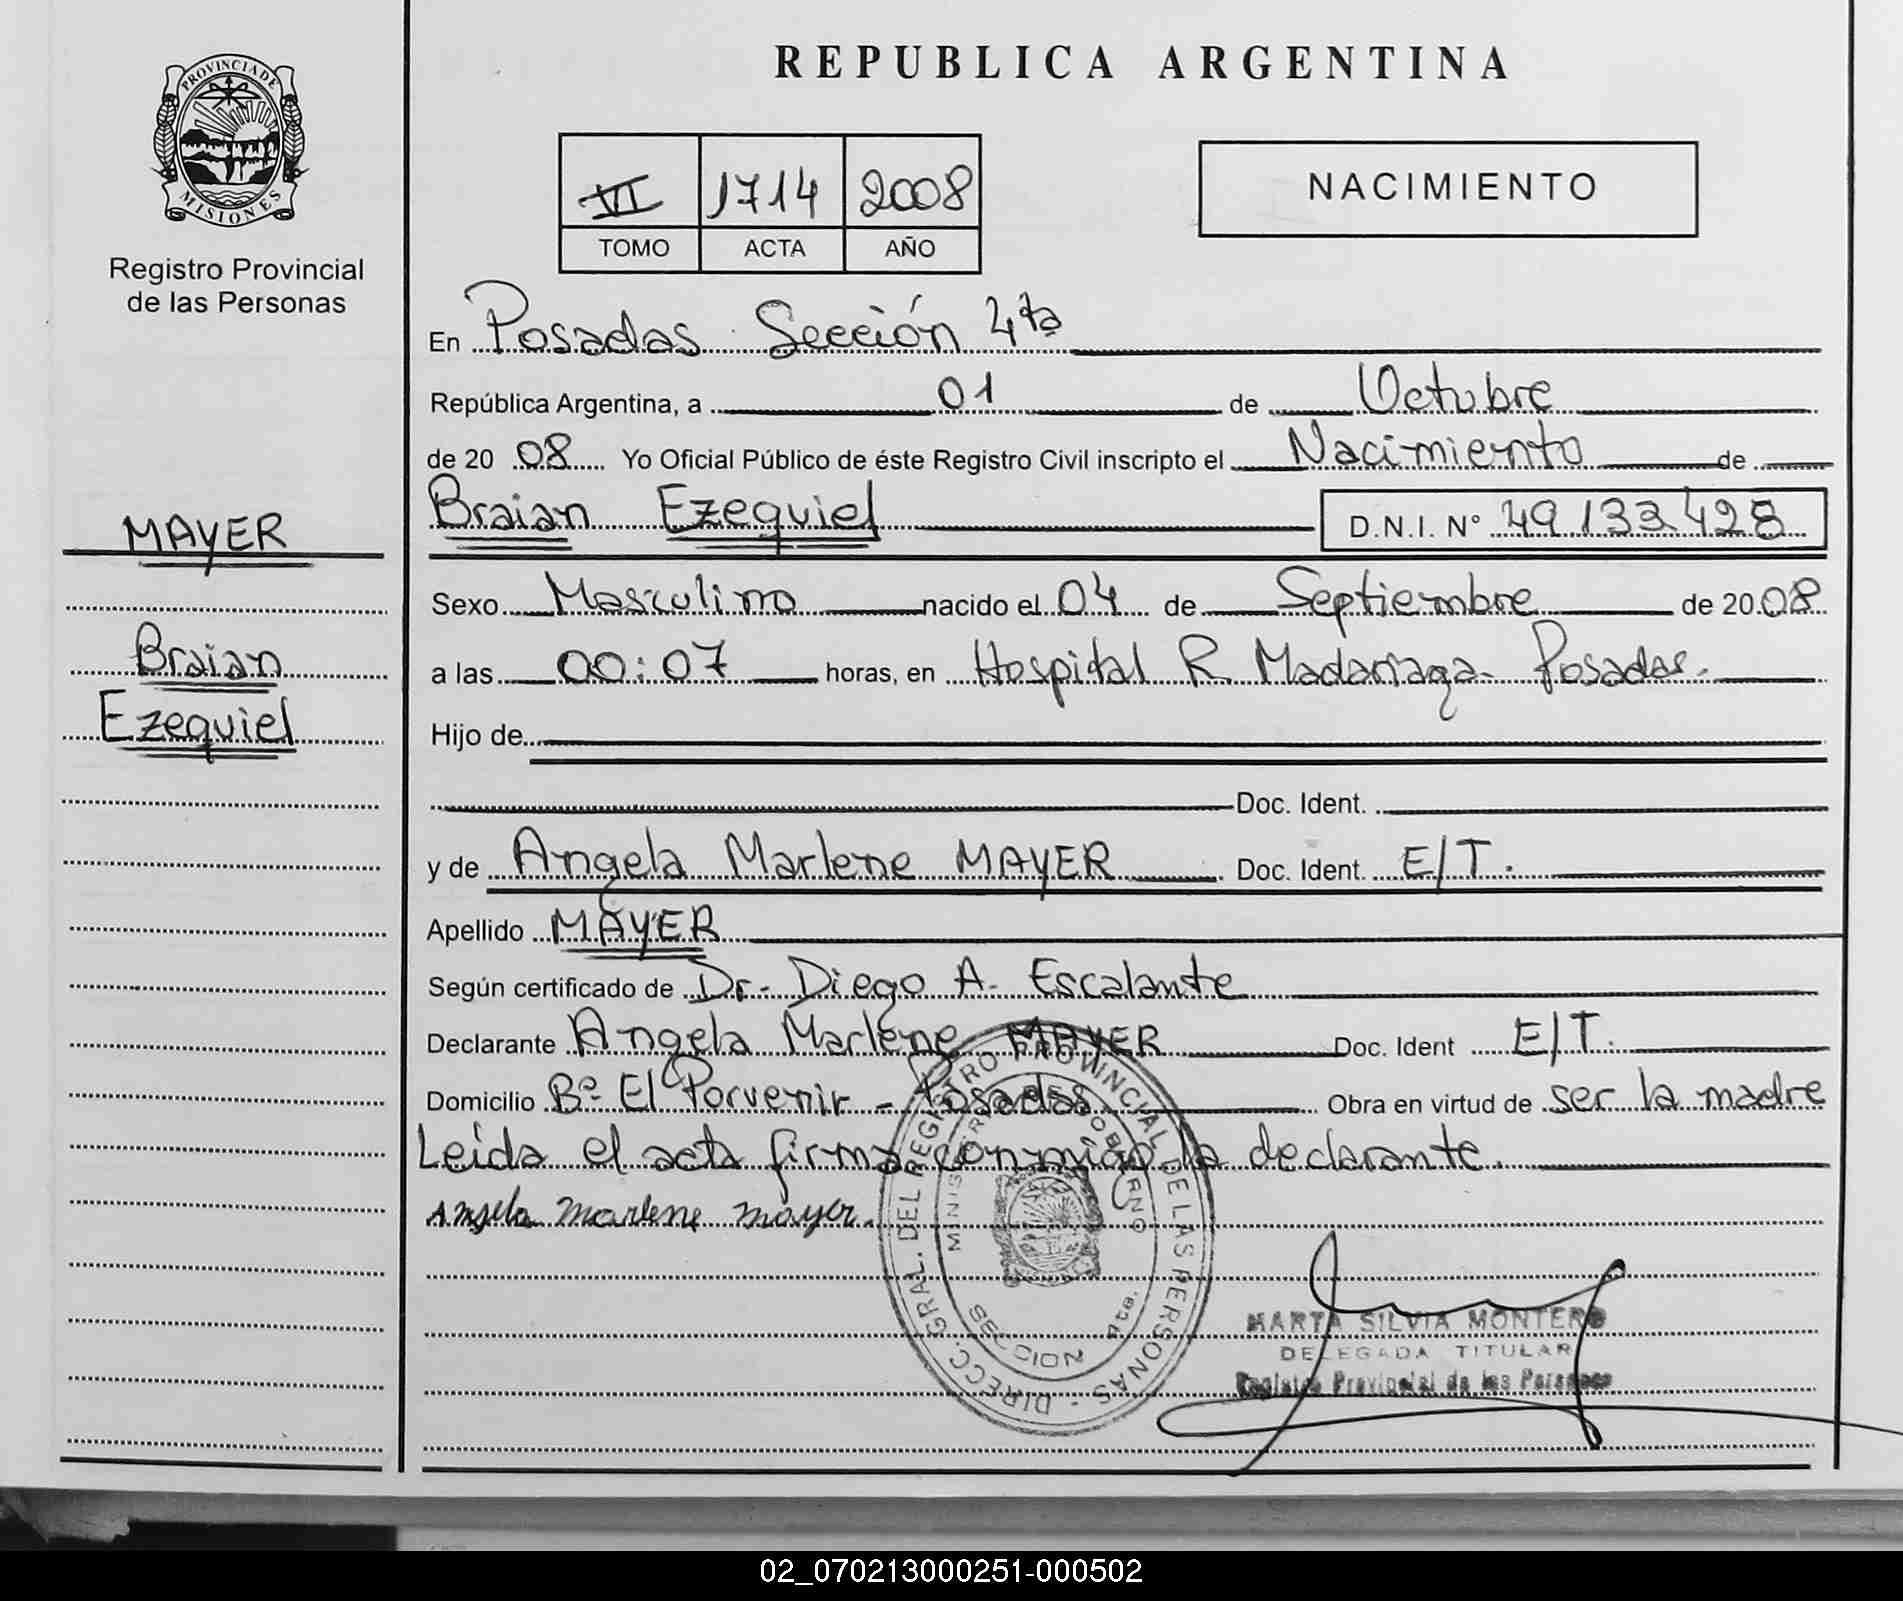 REPUBLICA ARGENTINA
PROVINCIA DE MISIONES
Registro Provincial
de las Personas
VI 1714 2008
TOMO ACTA AÑO
NACIMIENTO
En Posadas Sección 4ta
República Argentina, a 01 de Octubre
de 20 08 Yo Oficial Público de éste Registro Civil inscripto el Nacimiento de
Braian Ezequiel D.N.I. N° 49.133.428
MAYER
Braian
Ezequiel
Sexo Masculino nacido el 04 de Septiembre de 20 08
a las 00:07 horas, en Hospital R. Madariaga - Posadas.
Hijo de
Doc. Ident.
y de Angela Marlene MAYER Doc. Ident. E/T.
Apellido MAYER
Según certificado de Dr. Diego A. Escalante
Declarante Angela Marlene MAYER Doc. Ident E/T.
Domicilio Bº El Porvenir - Posadas Obra en virtud de ser la madre
Leída el acta firma conmigo la declarante.
Angela Marlene Mayer.
DIRECC. GRAL. DEL REGISTRO PROVINCIAL DE LAS PERSONAS
MINISTERIO DE GOBIERNO
SECCION 4ta.
MARTA SILVIA MONTERO
DELEGADA TITULAR
Registro Provincial de las Personas
02_070213000251-000502